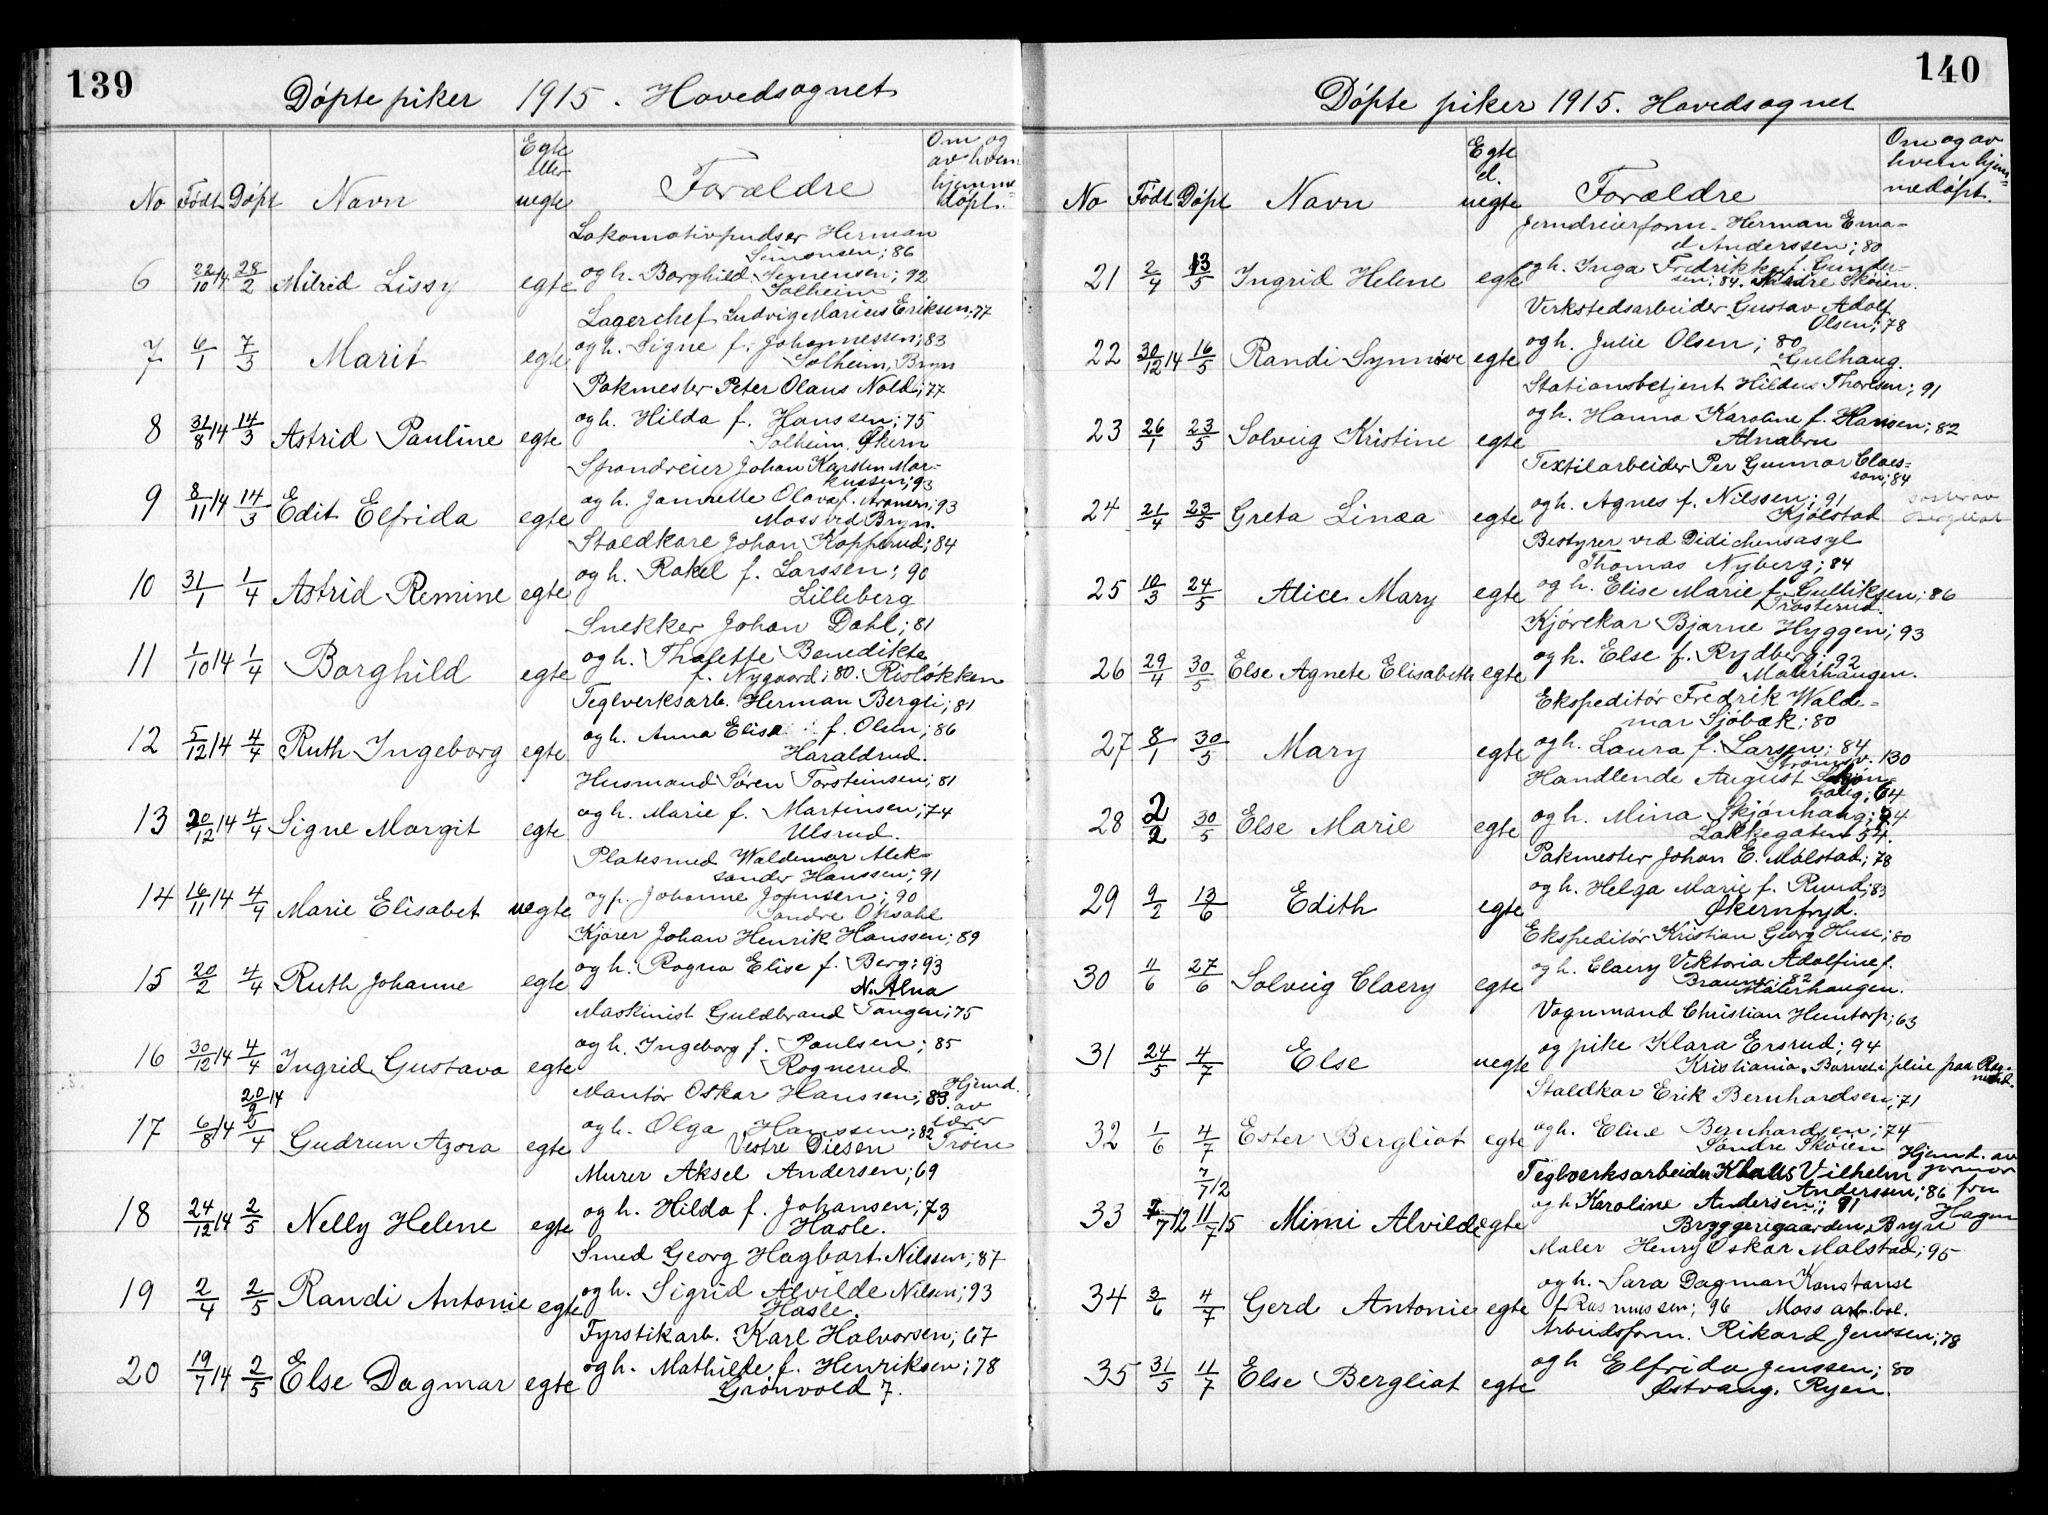 139
Döpte piker 1915. Hovedsognet
No Födt Döpt Navn Egte eller uegte Forældre Om og av hvem hjemmedöpt.
Lokomotivpudser Herman
Simonsen; 86
6 22/10 14 28/2 Milrid Lissy egte og h. Borghild Simensen; 92
Solheim
Lagerchef Ludvig Marius Eriksen; 77
7 6/1 7/3 Marit egte og h. Signe f. Johannessen; 83
Solheim, Bryn
Pakmester Peter Olaus Nolde; 77
8 31/8 14 14/3 Astrid Pauline egte og h. Hilda f. Hanssen; 75
Solheim. Økern
Johan Karsten Mar-
kussen; 93
9 8/11 14 14/3 Edit Elfrida egte og h. Jannette Olava f. 93
Moss ved Bryn.
Staldkare Johan Kopperud; 84
10 31/1 1/4 Astrid Remine egte og h. Rakel f. Larssen; 90
Lilleberg
Snekker Johan Dahl; 81
11 1/10 14 1/4 Borghild egte og h. Thalette Benedikte
f. Nygaard; 80. Risløkken
Teglverksarb. Herman Bergli; 81
12 5/12 14 4/4 Ruth Ingeborg egte og h. Anna Elise f. Olsen; 86
Haraldrud.
Husmand Søren Torsteinsen; 81
13 20/12 14 4/4 Signe Margit egte og h. Marie f. Martinsen; 74
Ulsrud.
Platesmed Waldemar Alek-
sander Hanssen; 91
14 16/11 14 4/4 Marie Elisabet uegte og p. Johanne Johnsen; 90
Søndre Opsahl
Kjører Johan Henrik Hanssen; 89
15 20/2 4/4 Ruth Johanne egte og h. Ragna Elise f. Berg; 93
N. Alna
Maskinist Guldbrand Tangen; 75
16 30/12 14 4/4 Ingrid Gustava egte og h. Ingeborg f. Paulsen; 85
Rognerud
Montør Oskar Hanssen; 83 Hjemd. av
20/9 14
17 6/8 14 5/4 Gudrun Azora egte og h. Olga Hanssen; 82 lærer
Vestre Diesen Troen
Murer Aksel Andersen; 69
18 24/12 14 2/5 Nelly Helene egte og h. Hilda f. Johansen; 73
Hasle.
Smed Georg Hagbart Nilssen; 87
19 2/4 2/5 Randi Antonie egte og h. Sigrid Alvilde Nilsen; 93
Hasle.
Fyrstikarb. Karl Halvorsen; 67
20 19/7 14 2/5 Else Dagmar egte og h. Mathilde f. Henriksen; 78
Grönvold 7.
140
Döpte piker 1915. Hovedsognet
No Födt Döpt Navn Egte el. uegte Forældre Om og av hvem hjemmedöpt.
Jerndreierform. Herman Ema-
el Anderssen; 80
21 2/4 13/5 Ingrid Helene egte og h. Inga Fredrikke f. Gunder-
sen; 84. Skøien.
Verkstedsarbeider Gustav Adolf
Olsen; 78
22 30/12 14 16/5 Randi Synnöve egte og h. Julie Olsen; 80
Gulhaug.
Stationsbetjent Hildus Thorlsen; 91
23 26/1 23/5 Solveig Kristine egte og h. Hanna Karoline f. Hansen; 82
Alnabru
Textilarbeider Per Gunnar Claes-
son; 84
24 21/4 23/5 Greta Linea egte og h. Agnes f. Nilssen; 91
Kjölstad
Bestyrer ved Didichensasyl
Thomas Nyberg; 84
25 10/3 24/5 Alice Mary egte og h. Elise Marie f. Gulliksen; 86
Trosterud.
Kjörekar Bjarne Hyggen; 93
26 29/4 30/5 Else Agnete Elisabeth egte og h. Else f. Rydberg; 92
Malerhaugen.
Ekspeditör Fredrik Walde-
mar Sjöbæk; 80
27 8/1 30/5 Mary egte og h. Laura f. Larsen; 84
Strömsv. 130
Handlende August Skjøn-
haug; 64
28 2/2 30/5 Else Marie egte og h. Mina Skjønhaug; 74
Lakkegaten 54.
Pakmester Johan E. Målstad; 78
29 9/2 13/6 Edith egte og h. Helga Marie f. Ruud; 83
Økernfryd.
Ekspeditör Kristian Georg Huse; 80
30 11/6 27/6 Solveig Claery egte og h. Claery Viktoria Adolfine f.
Braun; 82
Malerhaugen.
Vognmand Christian Huntorp; 63
31 24/5 4/7 Else uegte og pike Klara Ersrud; 94
Kristiania. Barnet i pleie paa
Staldkar Erik Bernhardsen; 71
32 1/6 4/7 Ester Bergliot egte og h. Eline Bernhardsen; 74
Söndre Sköien Hjemd. av jormor
7/7 12
Teglverksarbeider Klaus Vilhelm
Anderssen; 86 fru
33 7/7 12 11/7 15 Mimi Alvilde egte og h Karoline Andersen; 91 Hagen
Bryggerigaarden, Bryn
Maler Henry Oskar Malstad; 95
34 3/6 4/7 Gerd Antonie egte og h. Sara Dagmar Konstanse
f. Rasmussen; 96 Moss arb. bol.
Arbeidsform. Rikard Jenssen; 78
35 31/5 11/7 Else Bergliot egte og h Elfrida Jenssen; 80
Østvang. Ryen.